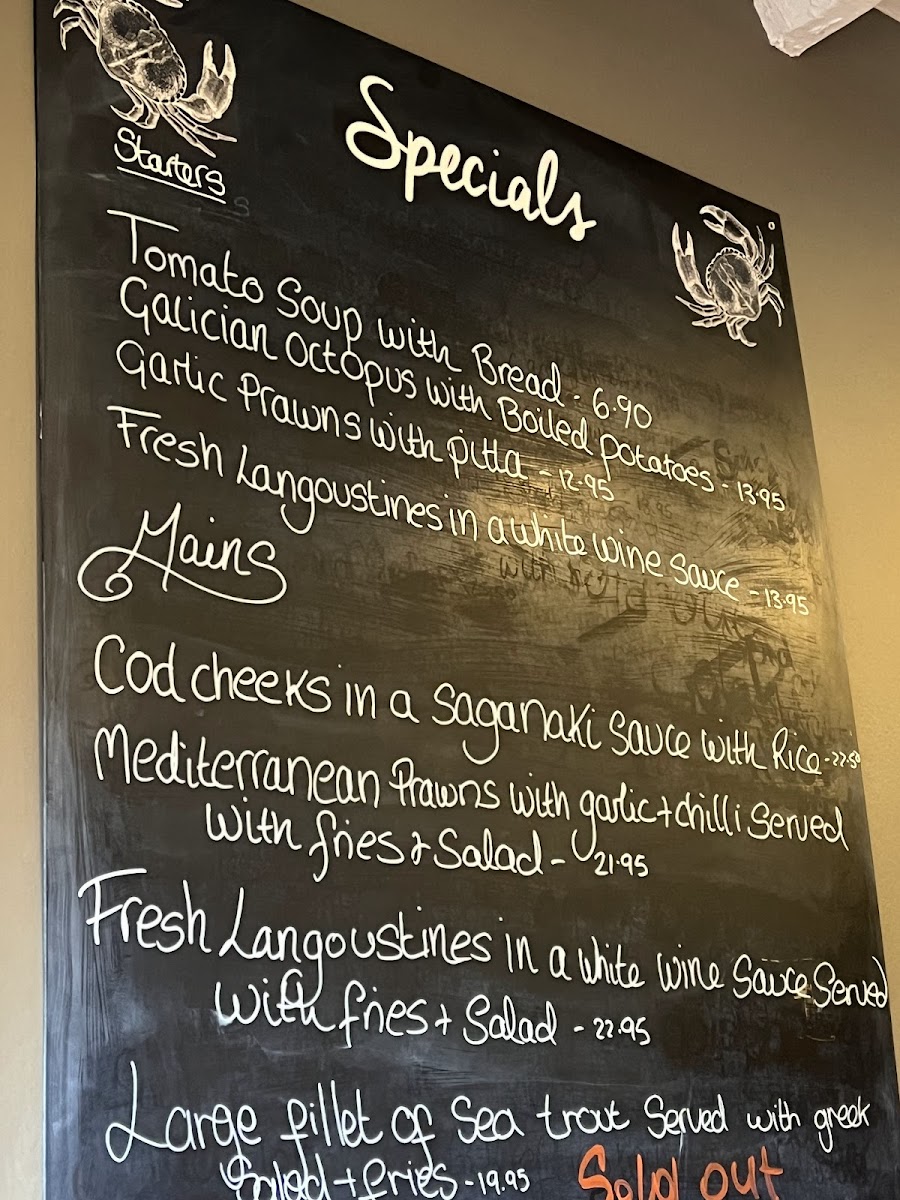 Specials
Starters
Tomato Soup with Bread - 6.90
Galician Octopus with Boiled potatoes - 13.95
Garlic Prawns with pitta - 12.95
Fresh Langoustines in a white wine sauce - 13.95
Mains
Cod cheeks in a saganaki sauce with Rice - 22.50
Mediterranean Prawns with garlic + chilli served
with fries & Salad - 21.95
Fresh Langoustines in a white wine sauce Served
with fries + Salad - 22.95
Large fillet of Sea trout Served with greek
Salad + fries - 19.95 Sold out